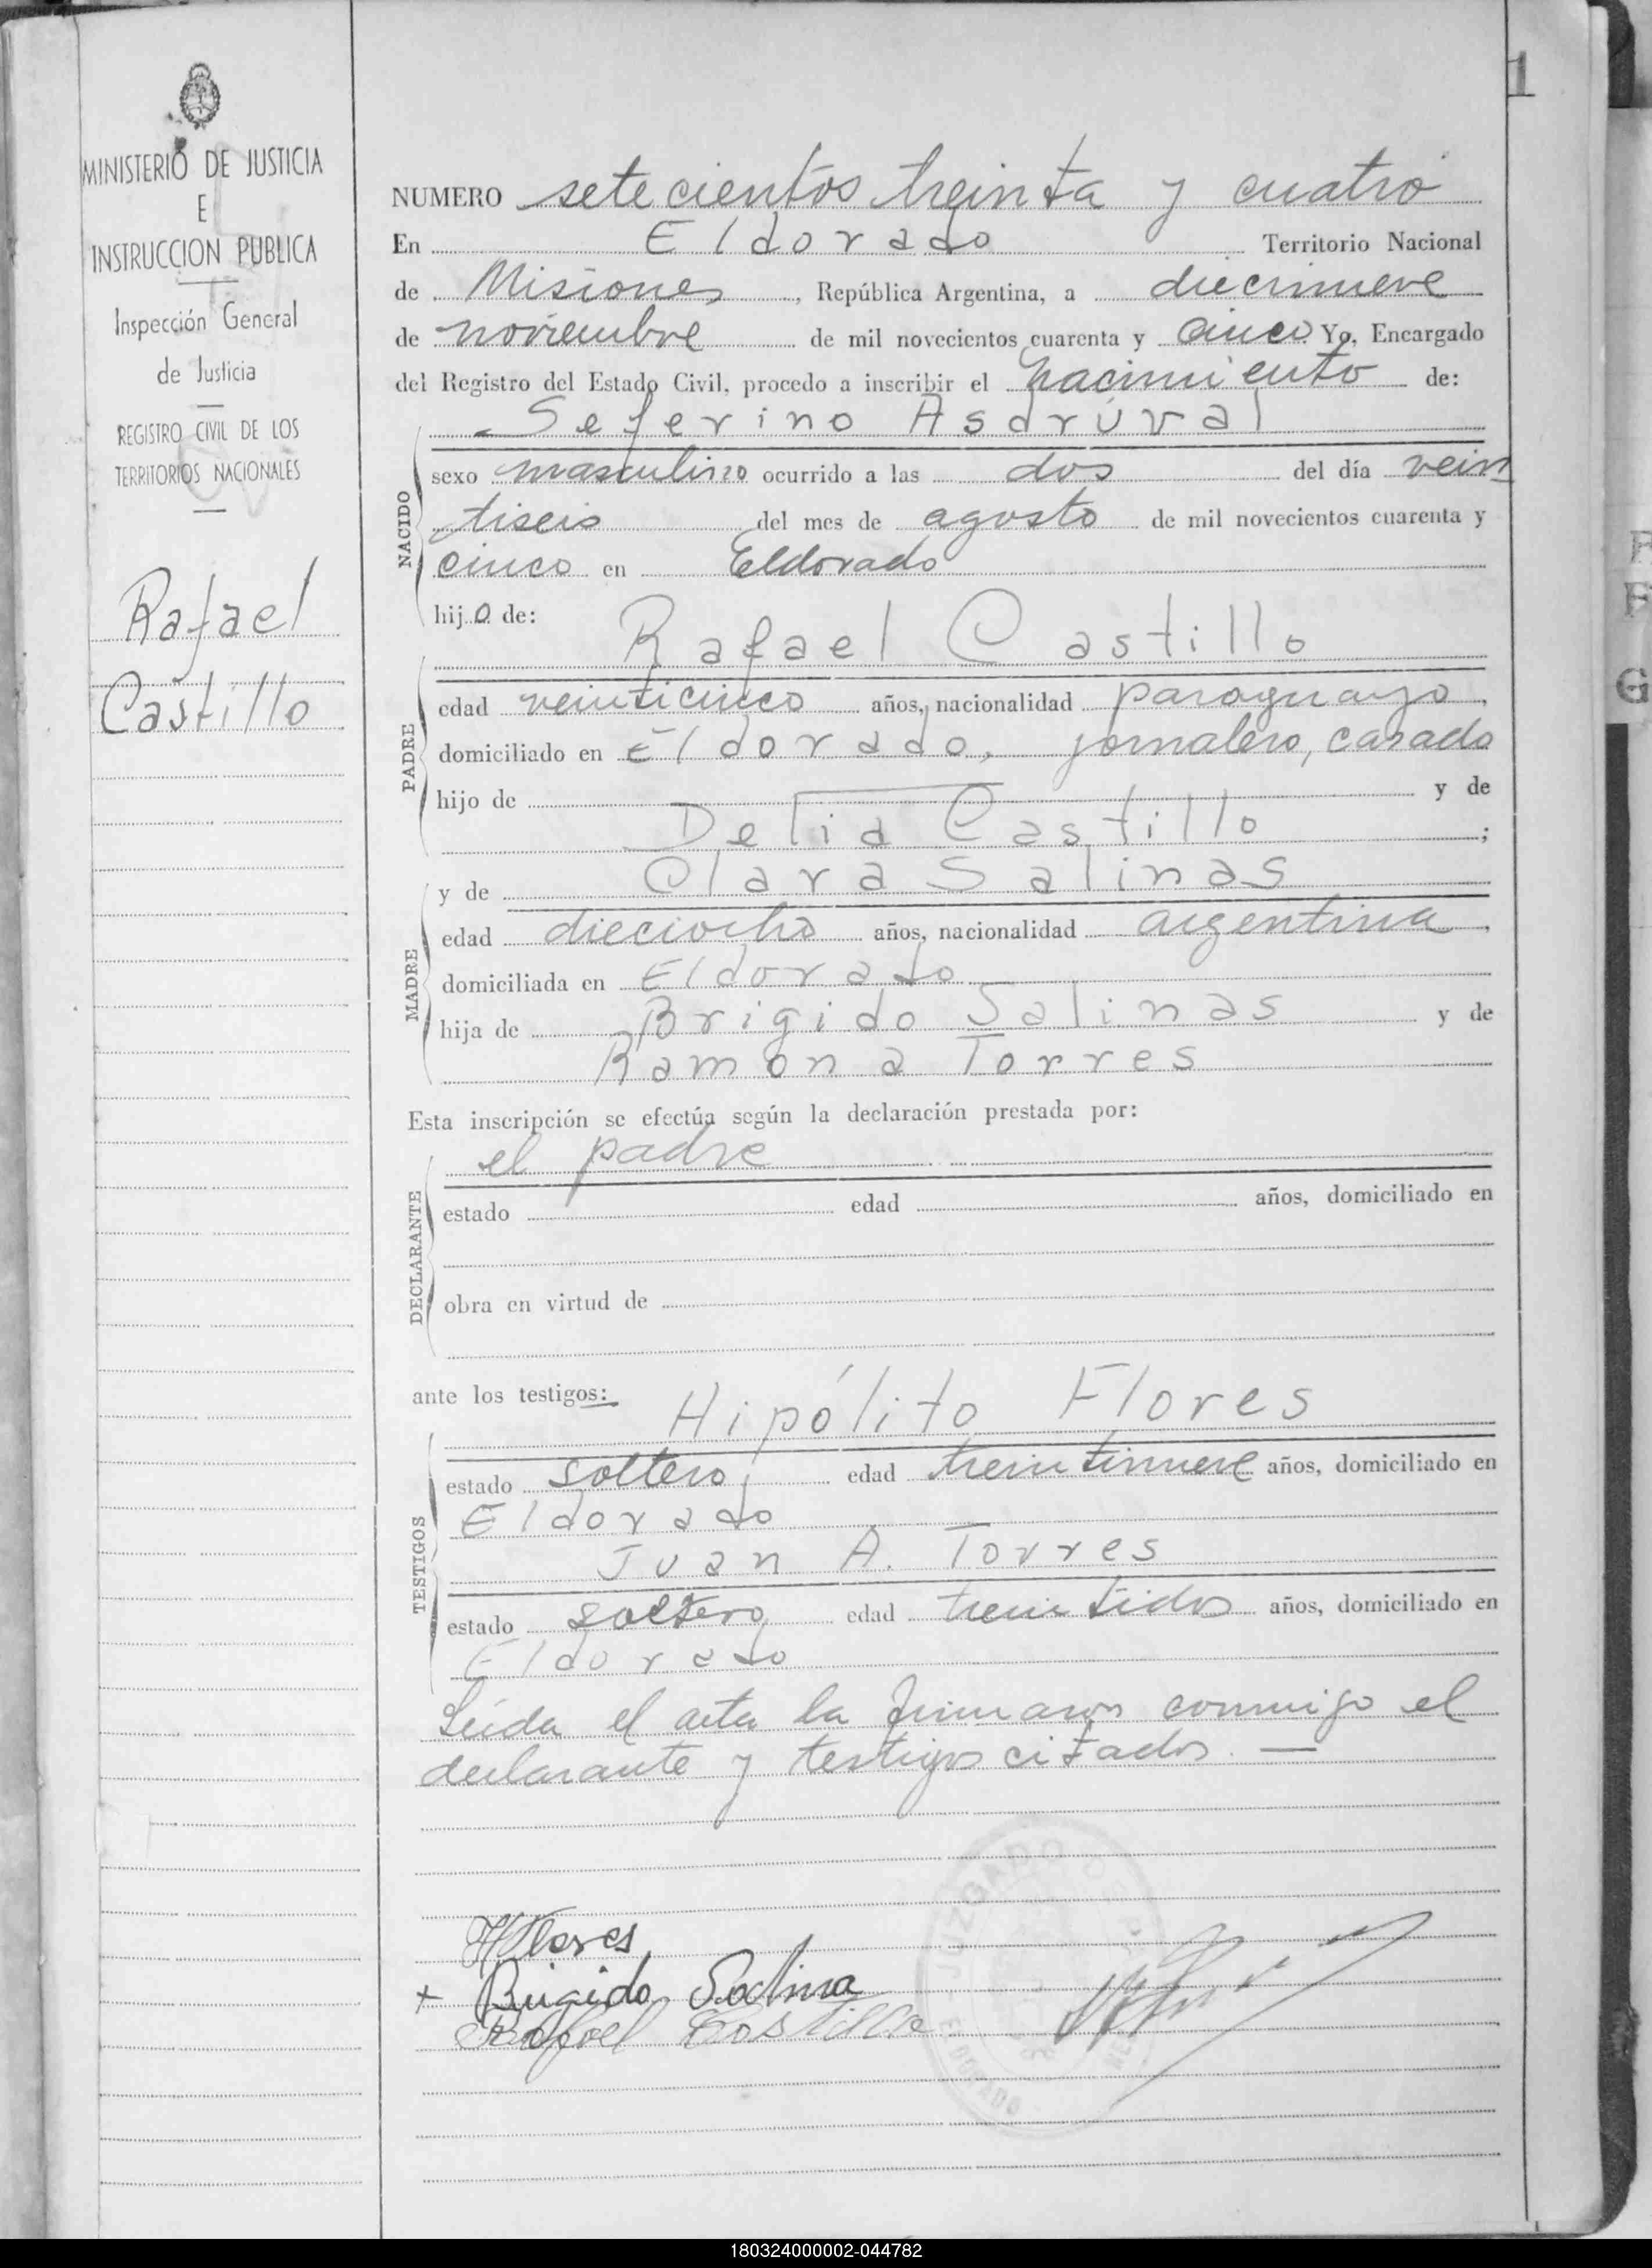 1
MINISTERIO DE JUSTICIA
E
INSTRUCCION PUBLICA
Inspección General
de Justicia
REGISTRO CIVIL DE LOS
TERRITORIOS NACIONALES
Rafael
Castillo
NUMERO setecientos treinta y cuatro
En Eldorado Territorio Nacional
de Misiones, República Argentina, a diecinueve
de noviembre de mil novecientos cuarenta y cinco Yo, Encargado
del Registro del Estado Civil, procedo a inscribir el nacimiento de:
Seferino Asdrúval
NACIDO
sexo masculino ocurrido a las dos del día vein
tiseis del mes de agosto de mil novecientos cuarenta y
cinco en Eldorado
hijo de:
Rafael Castillo
PADRE
edad veinticinco años, nacionalidad paraguayo,
domiciliado en Eldorado, jornalero, casado
hijo de y de
Delia Castillo;
y de Clara Salinas
MADRE
edad dieciocho años, nacionalidad argentina,
domiciliada en Eldorado
hija de Brigido Salinas y de
Ramona Torres
Esta inscripción se efectúa según la declaración prestada por:
el padre
DECLARANTE
estado edad años, domiciliado en
obra en virtud de
ante los testigos: Hipólito Flores
TESTIGOS
estado soltero, edad treintinueve años, domiciliado en
Eldorado
Juan A. Torres
estado soltero edad treintidos años, domiciliado en
Eldorado
Leida el acta la firmaron conmigo el
declarante y testigos citados. —
HFlores
+ Brigido Salina
Rafael Castillo
JUZGADO
ELDORADO
180324000002-044782